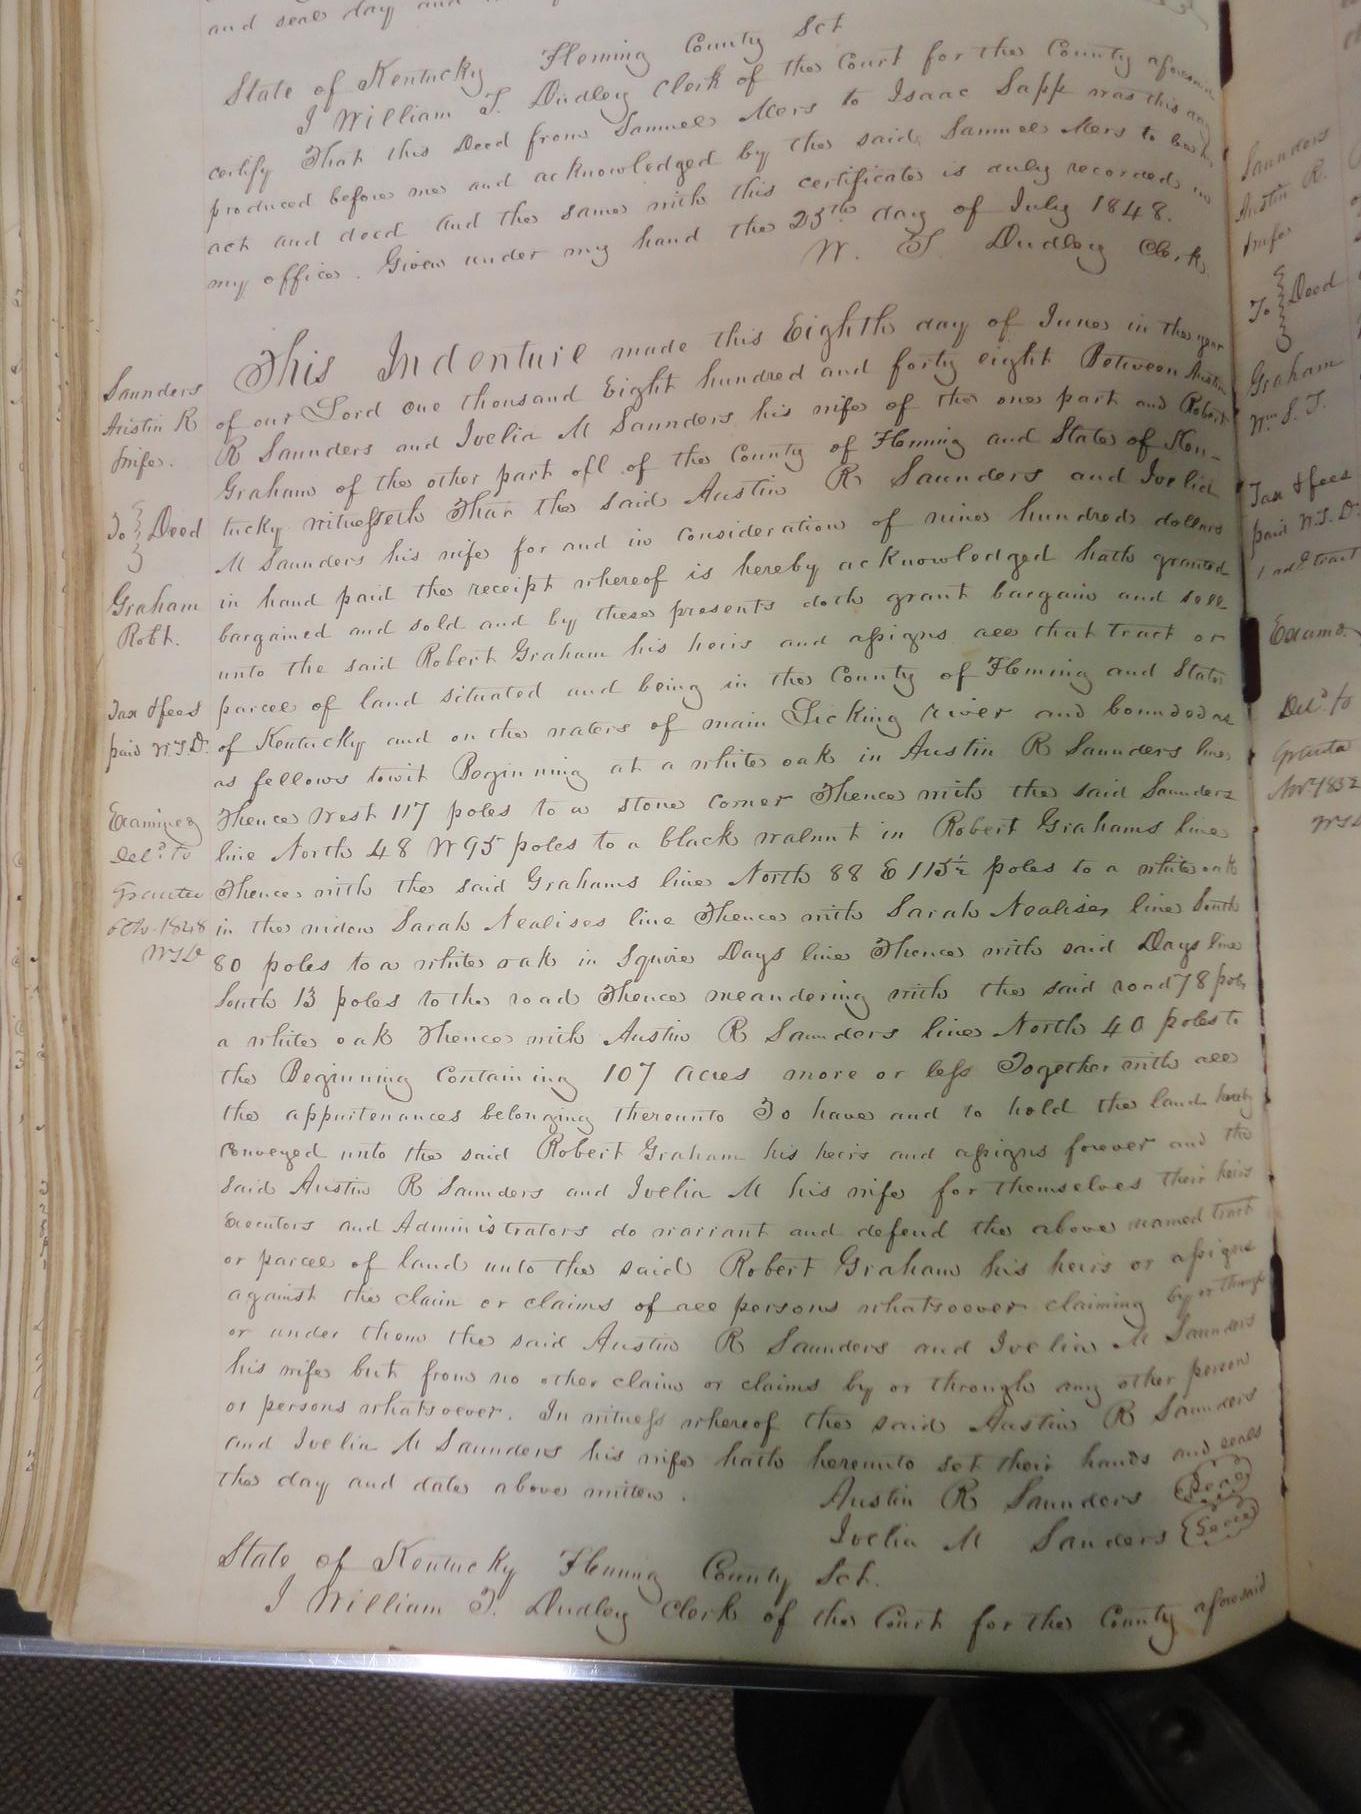 and seal day and
State of Kentucky Fleming County Sct
I William T. Dudley Clerk of the Court for the County aforesaid
certify That this Deed from Samuel Mers to Isaac Sapp was this day
produced before me and acknowledged by the said Samuel Mers to be his
act and deed and the same with this certificate is duly recorded in
my office. Given under my hand the 25th day of July 1848.
W. T. Dudley Clerk
Saunders
Austin R
& wife.
To Deed
Graham
Robt.
Tax & fees
paid W.T.D.
Examined
Deld. to
Grantee
Octo. 1848
WTD
This Indenture made this Eighth day of June in the year
of our Lord one thousand Eight hundred and forty eight Between Austin
R Saunders and Ivelia M Saunders his wife of the one part and Robert
Graham of the other part all of the County of Fleming and State of Ken-
tucky witnesseth That the said Austin R Saunders and Ivelia
M Saunders his wife for and in consideration of nine hundred dollars
in hand paid the receipt whereof is hereby acknowledged hath granted
bargained and sold and by these presents doth grant bargain and sell
unto the said Robert Graham his heirs and assigns all that tract or
parcel of land situated and being in the County of Fleming and State
of Kentucky and on the waters of main Licking river and bounded as
as fellows towit Beginning at a white oak in Austin R Saunders line
Thence West 117 poles to a stone corner Thence with the said Saunders
line North 48 W 95 poles to a black walnut in Robert Grahams line
Thence with the said Grahams line North 88 E 115½ poles to a white oak
in the widow Sarah Nealises line Thence with Sarah Nealises line South
80 poles to a white oak in Squire Days line Thence with said Days line
South 13 poles to the road Thence meandering with the said road 78 poles
a white oak Thence with Austin R Saunders line North 40 poles to
the Beginning Containing 107 acres more or less Together with all
the appurtenances belonging thereunto To have and to hold the land hereby
conveyed unto the said Robert Graham his heirs and assigns forever and the
said Austin R Saunders and Ivelia M his wife for themselves their heirs
Executors and Administrators do warrant and defend the above named tract
or parcel of land unto the said Robert Graham his heirs or assigns
against the claim or claims of all persons whatsoever claiming by or through
or under them the said Austin R Saunders and Ivelia M Saunders
his wife but from no other claim or claims by or through any other person
or persons whatsoever. In witness whereof the said Austin R Saunders
and Ivelia M Saunders his wife hath hereunto set their hands and seals
the day and date above written.
Austin R Saunders Seal
Ivelia M Sanders Seal
State of Kentucky Fleming County Sct.
I William T. Dudley Clerk of the Court for the County aforesaid
Saunders
Austin R.
& wife
To Deed
Graham
Wm S. T.
Tax & fees
paid W.T.D.
1 add tract
Examd.
Deld. to
Grantee
Novr 1852
WTD